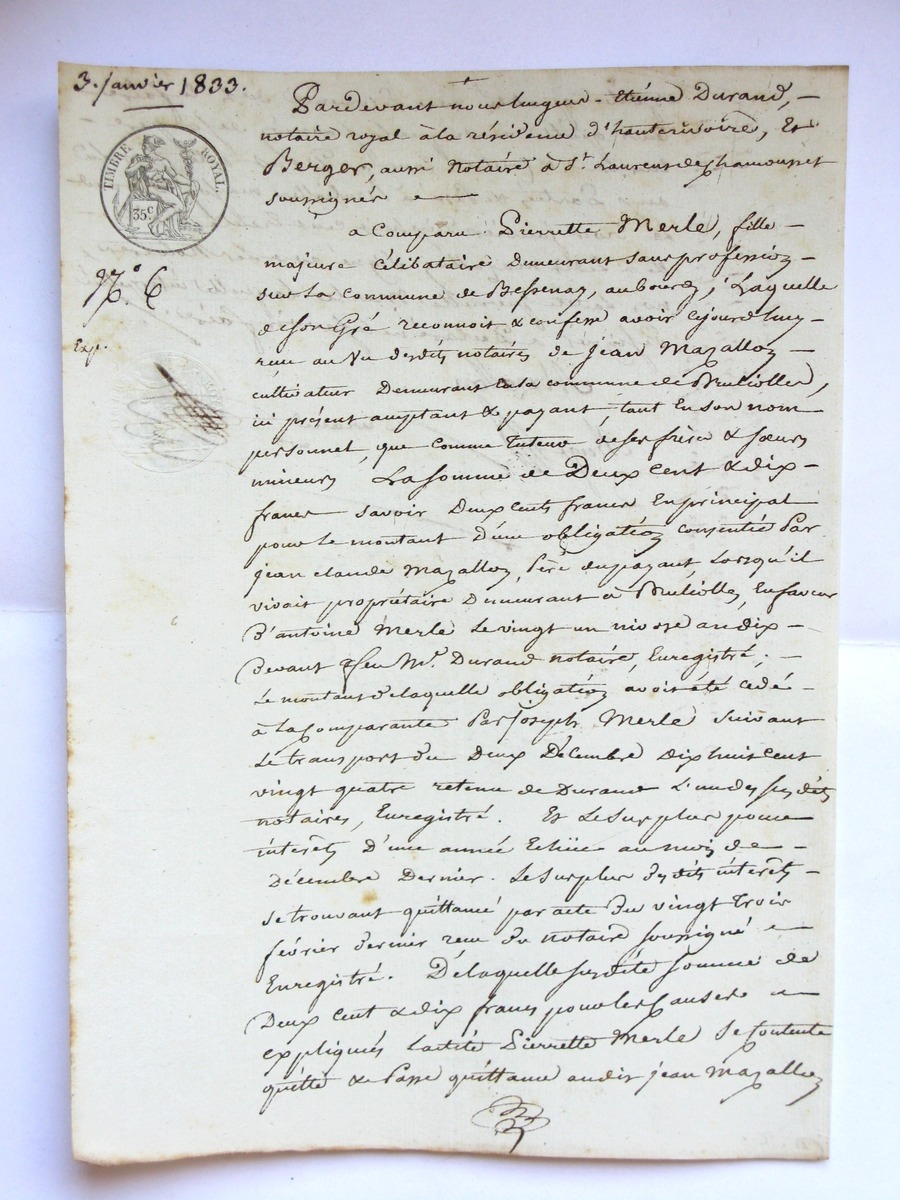 3. Janvier 1833.
TIMBRE ROYAL.
35c
N.° 6
Exp.
Pardevant nous Etiénne Durand, –
notaire royal à la résidence d'hauterivoire, Et
Berger, aussi Notaire à St. Laurent de chamousset
soussignés –
a Comparu Pierrette Merle, fille –
majeure Célibataire Demeurant sans profession –
sur la commune de Bessenay, au bourg, Laquelle
de son Gré reconnoit & confesse avoir cejourdhuy –
recu au Vu desdits notaires de jean Mazallon –
cultivateur Demeurant En la commune de Brulioles,
ici présent acceptant & payant, tant En son nom –
personnel, que comme tuteur de ses frères & sœurs
mineurs La somme de Deux cent & dix –
francs savoir Deux cents francs En principal
pour le montant d'une obligation consentie Par
jean claude Mazallon, Père du payant Lorsqu'il
vivait propriétaire Demeurant à Brulioles, En faveur
d'antoine Merle Le vingt un nivose an dix –
devant feu Me. Durand notaire, Enregistré, –
Le montant de laquelle obligation avoit été cedé –
à la Comparante Par Joseph Merle suivant
Le transport du Deux Décembre Dix huit cent
vingt quatre retenu de Durand L'un des susdits
notaires, Enregistré. Et Le surplus pour
intérêts D'une année Echue au mois de –
Décembre Dernier. Le surplus desdits intérêts –
se trouvant quittancé par acte du vingt trois
février dernier recu du notaire soussigné –
Enregistré. De laquelle susdite somme de
Deux cent & dix francs pour les causes –
expliqués Ladite Pierrette Merle se Contente
quitte & Passe quittance audit jean Mazallon